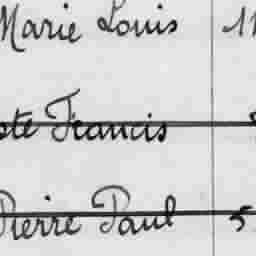 Marie Louis 11
ste Francis
Pierre Paul 5